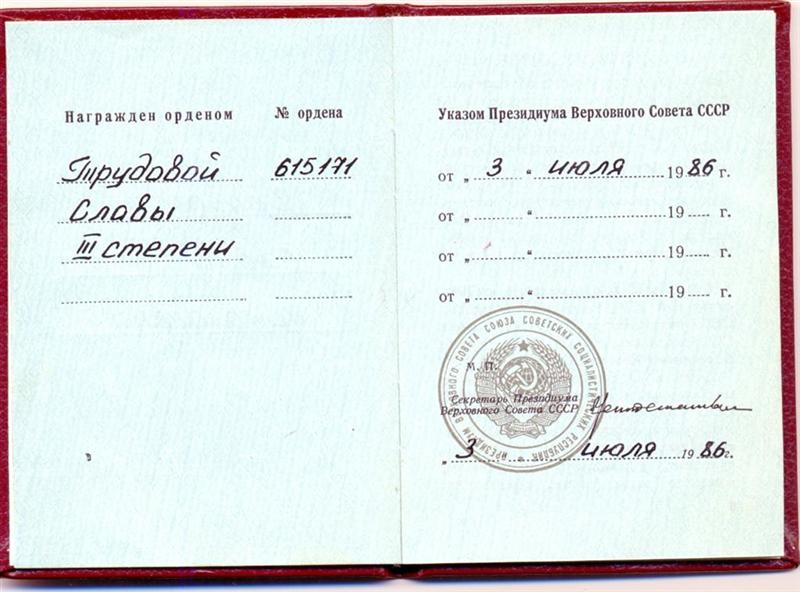 Награжден орденом № ордена
Трудовой 615171
Славы
III степени
Указом Президиума Верховного Совета СССР
от „ 3 “ июля 1986 г.
от „ “ 19 г.
от „ “ 19 г.
от „ “ 19 г.
ПРЕЗИДИУМ ВЕРХОВНОГО СОВЕТА СОЮЗА СОВЕТСКИХ СОЦИАЛИСТИЧЕСКИХ РЕСПУБЛИК
М. П.
Секретарь Президиума
Верховного Совета СССР
„ 3 июля 1986г.